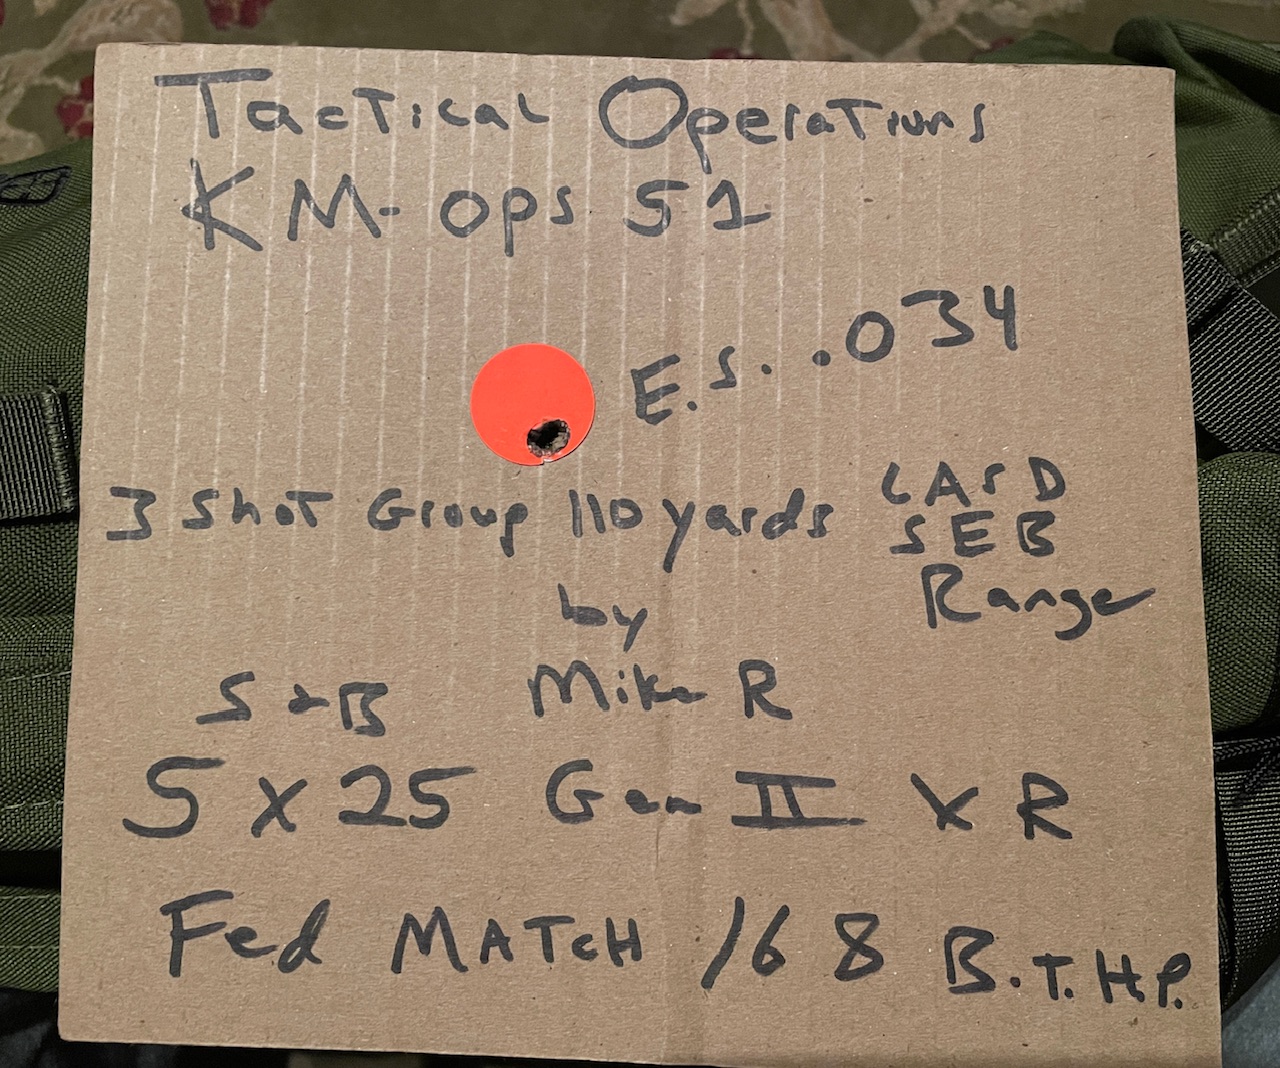 Tactical Operations
KM-ops 51
E.S. .034
3 Shot Group 110 yards
LASD
SEB
Range
by
Mike R
S&B
5 x 25 Gen II XR
Fed MATCH 168 B.T.H.P.